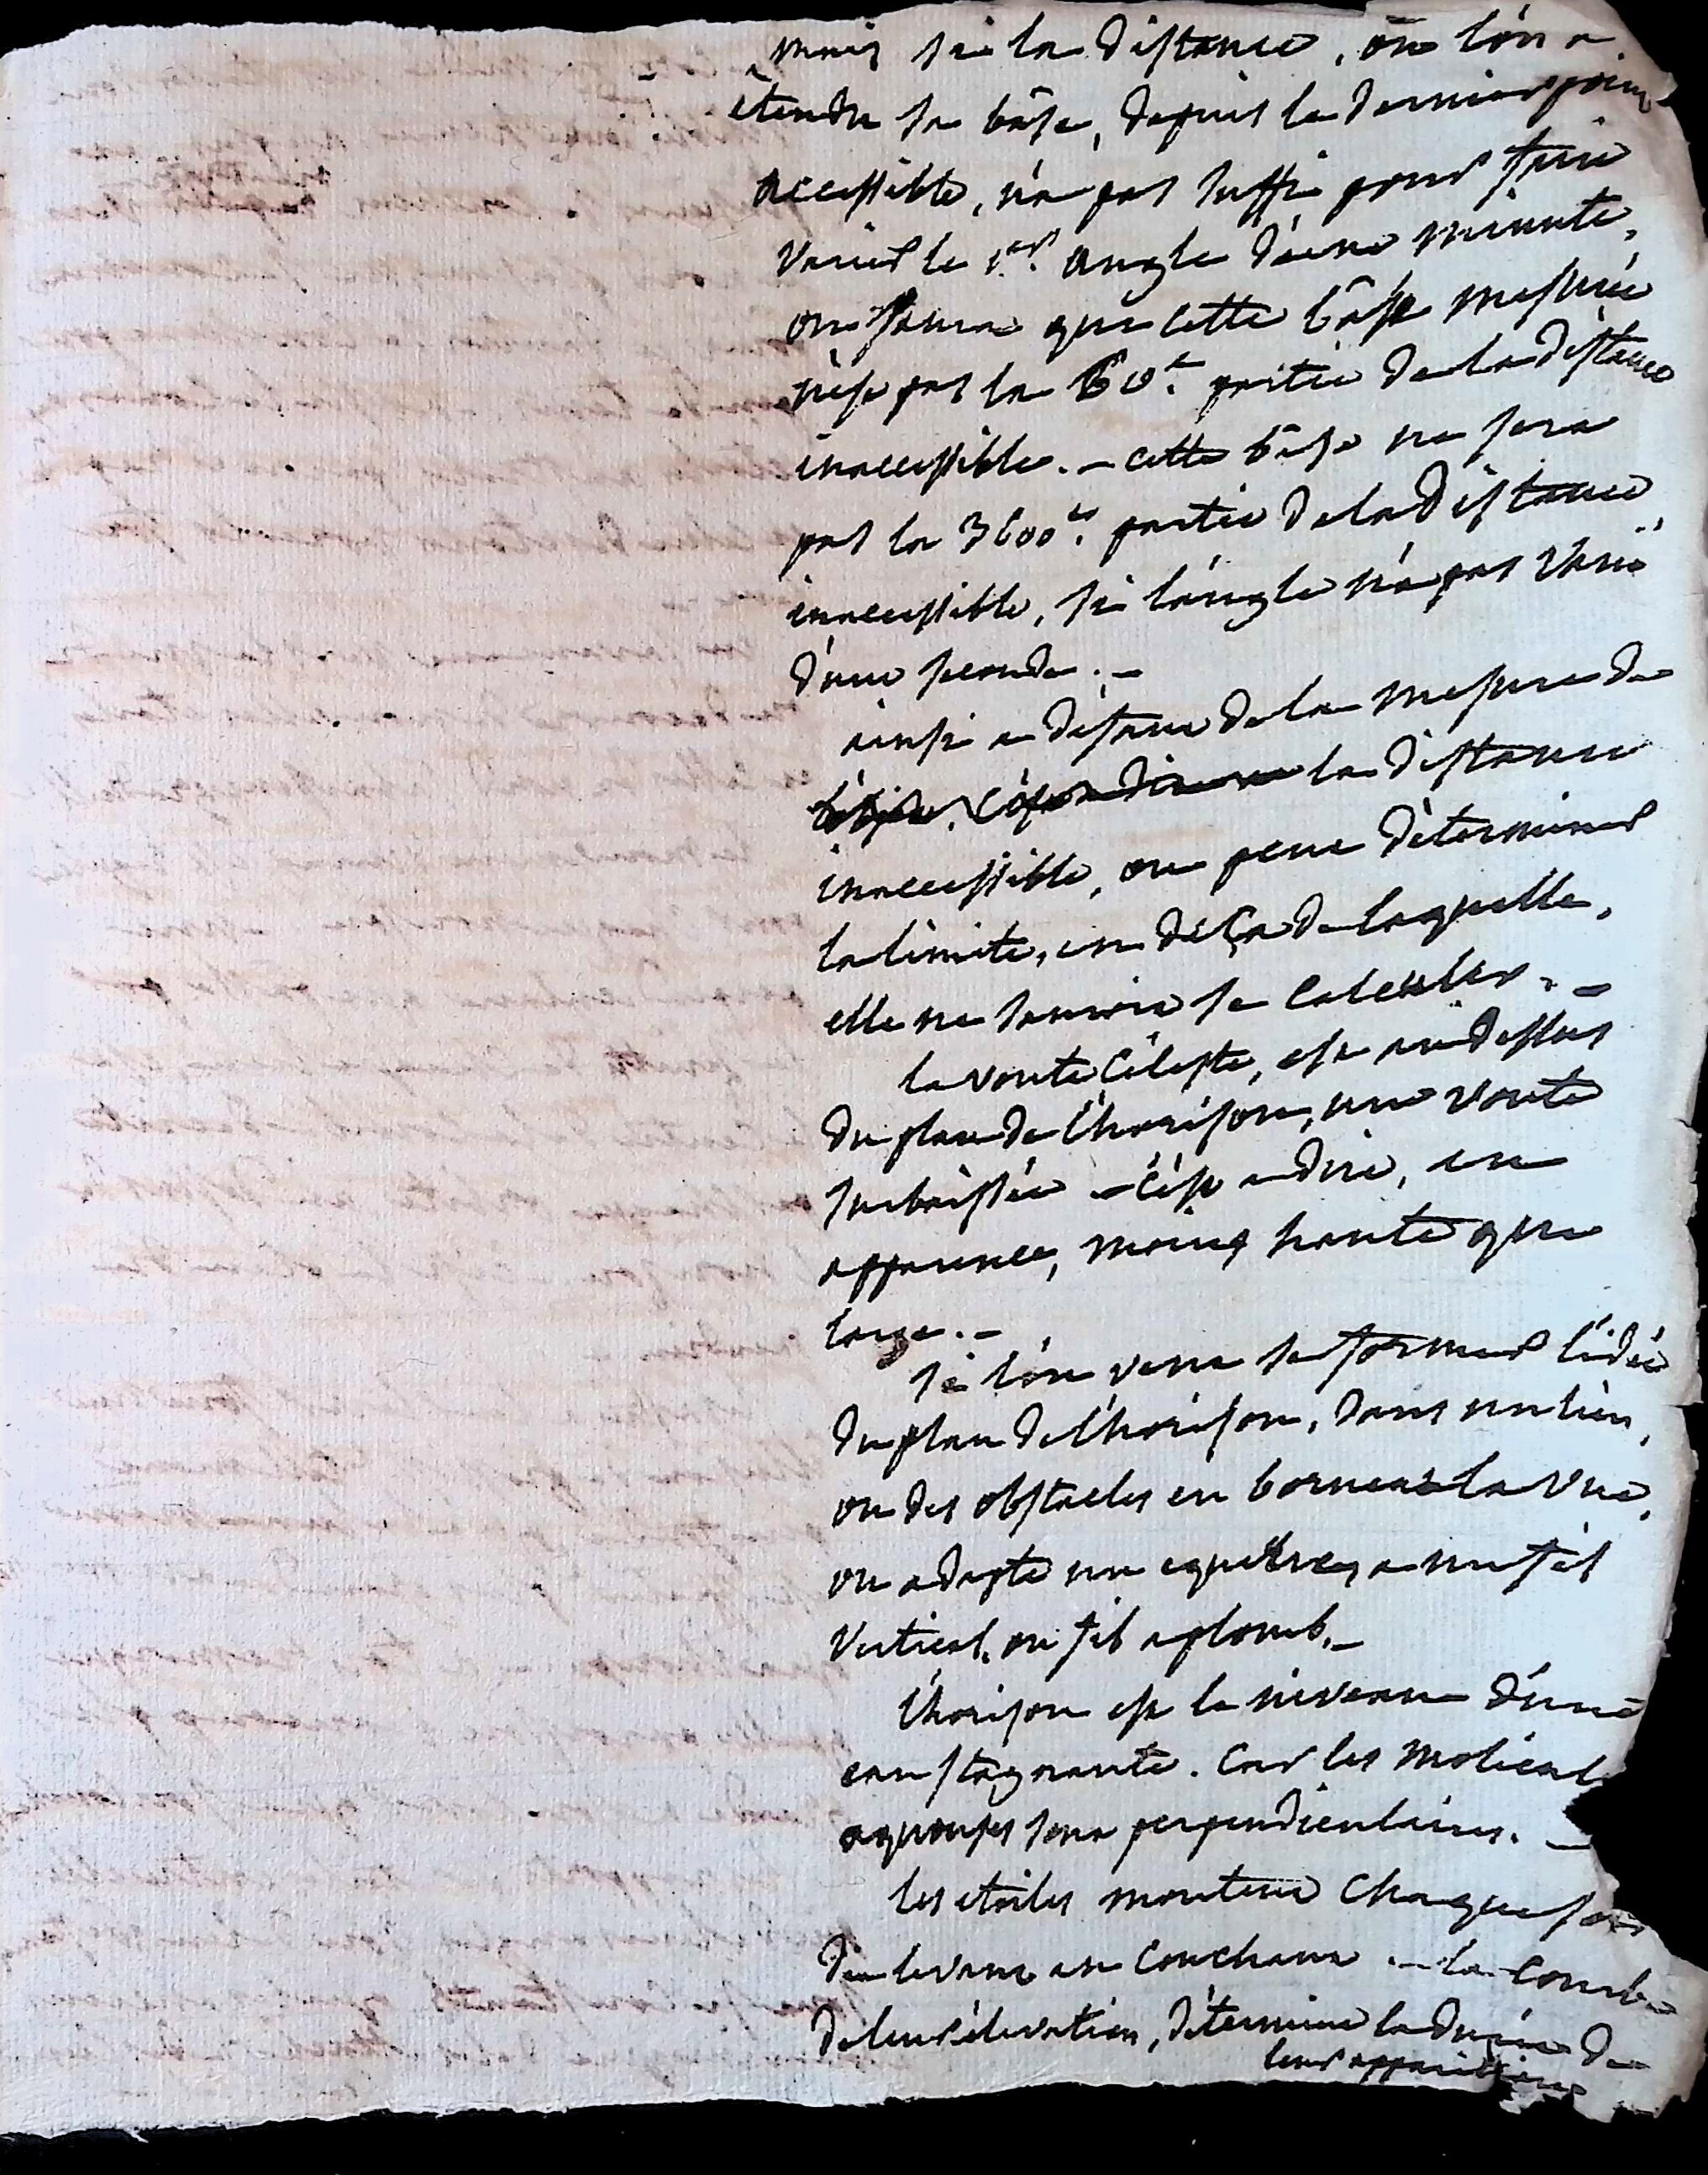 mais si la distance, où l'on a
etendu sa bâse, depuis le dernier point
accessible, n'a pas suffi pour faire
varier le 1er. angle d'une minute,
on saura que cette bâse mesurée
n'est pas la 60e. partie de la distance
inaccessible. - cette bâse ne sera
pas la 3600e. partie de la distance
inaccessible, si l'angle n'a pas varié
d'une seconde. -
ainsi a défaut de la mesure de
la distance
inaccessible, on peut déterminer
la limite, en deça de laquelle,
elle ne sauroit se calculer. -
la voute céleste, est au dessus
du plan de l'horison, une voute
surbaissée - c'est a dire, en
apparence, moins haute que
large. -
si l'on veut se former l'idée
du plan de l'horison, dans un lieu,
ou des obstacles en bornent la vue,
on adapte un equerre, a un fil
vertical, ou fil aplomb. -
l'horison est le niveau d'une
eau stagnante. Car les molécules
aqueuses sont perpendiculaires. -
les etoiles montent chaque soir
du levant au couchant. - la courbe
de leur élevation, détermine la durée de
leur apparition